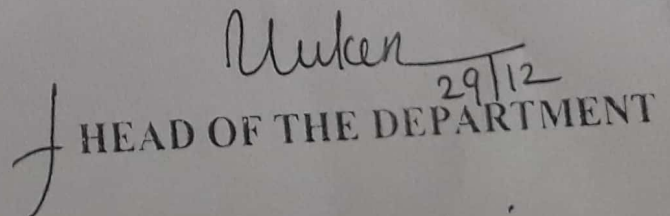 29/12
HEAD OF THE DEPARTMENT